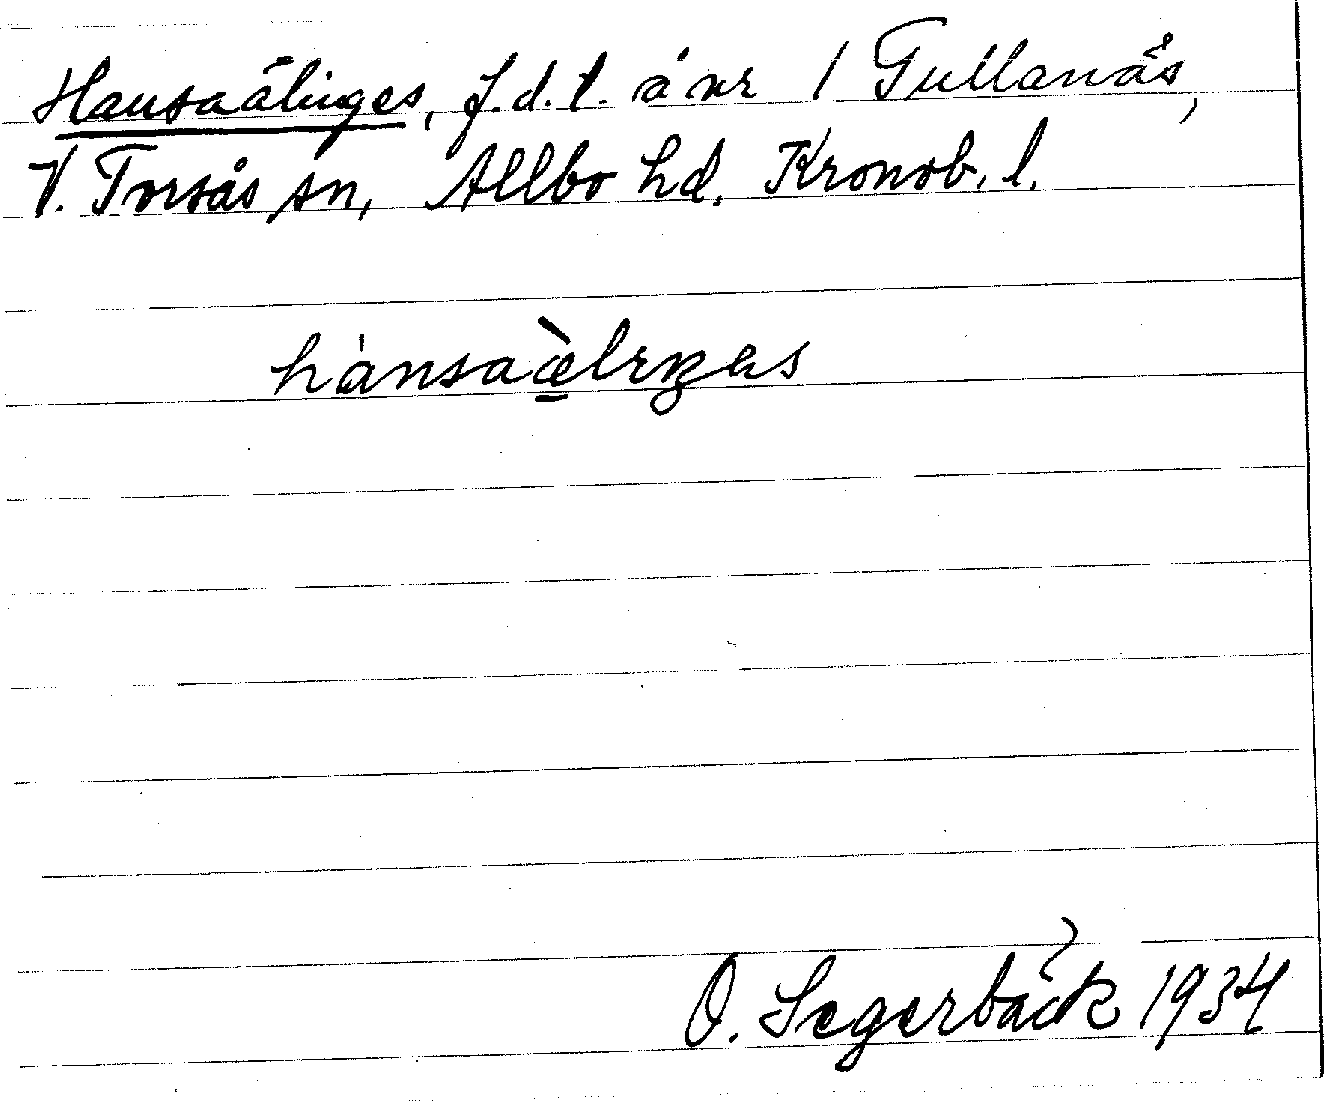 Hansaälinges, f.d.t. å nr 1 Gullanäs,
V. Torsås sn, Allbo hd. Kronob. l.
hánsaæ̀lıŋas
O. Segerbäck 1934